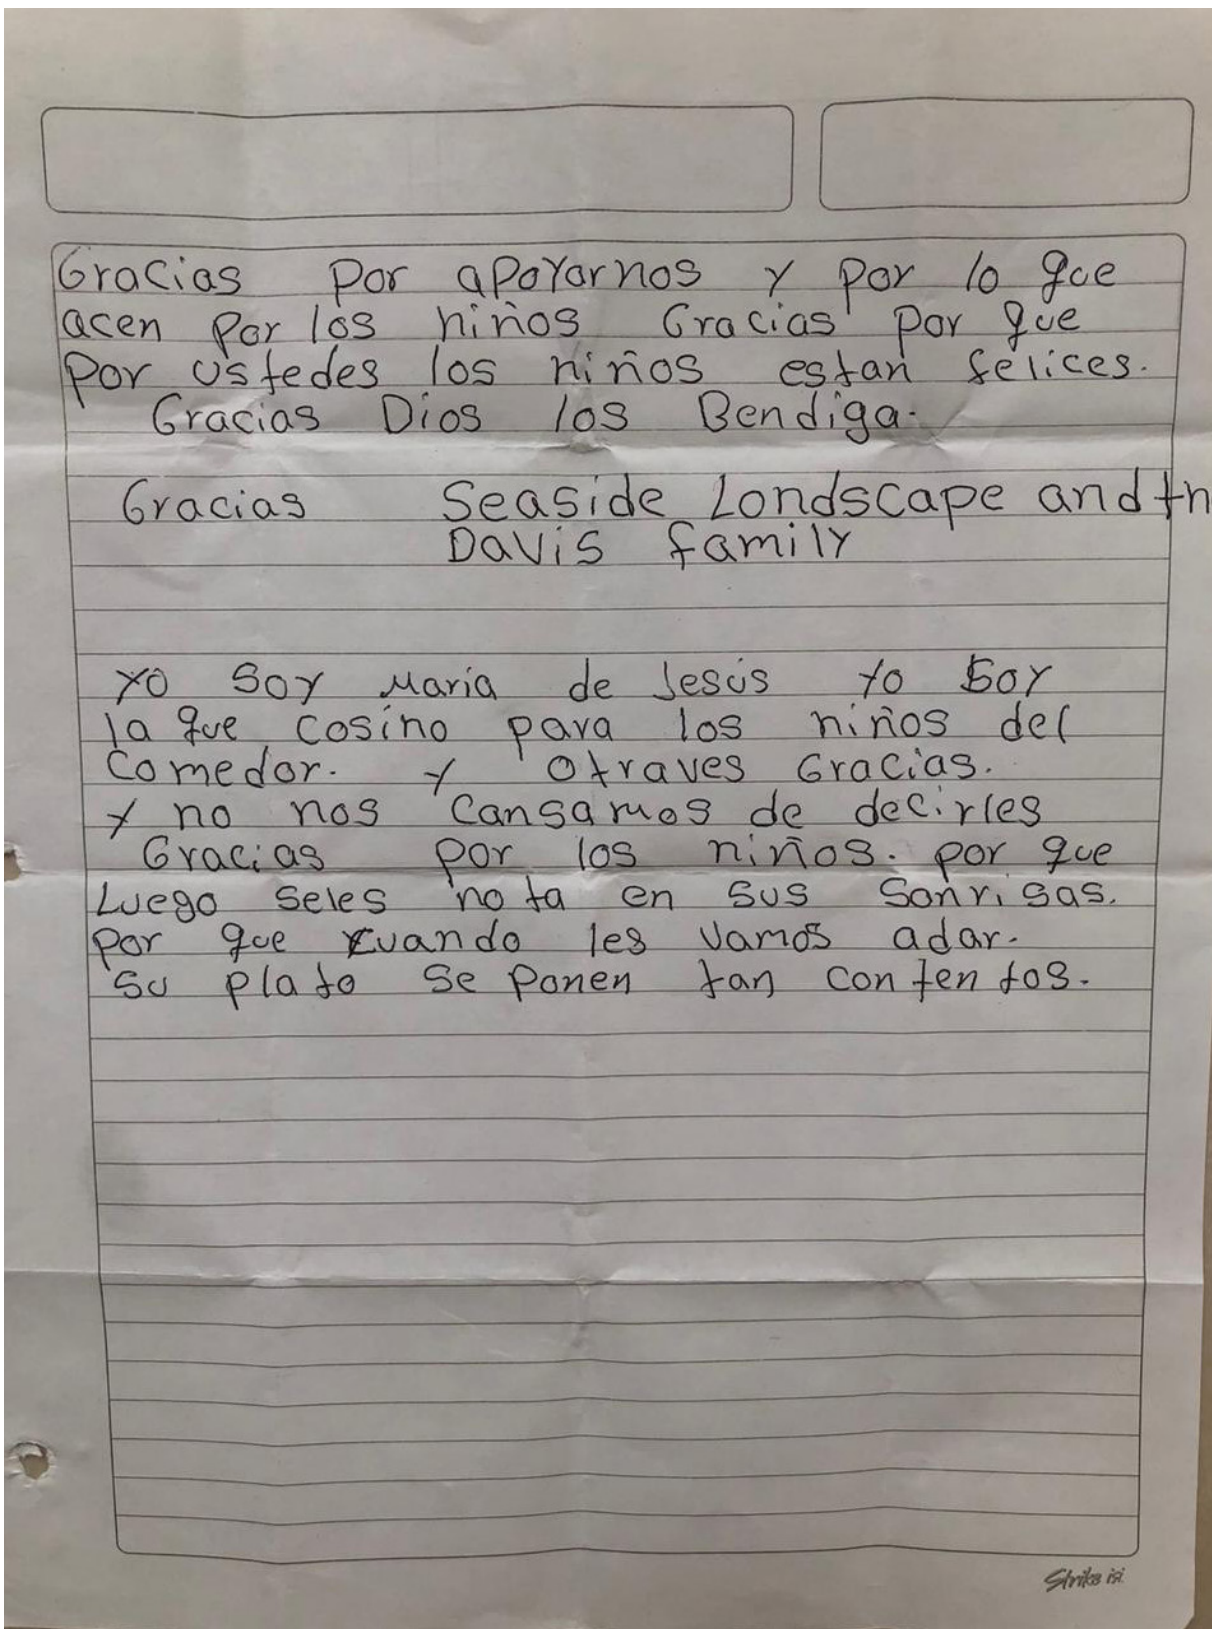 Gracias por apoyarnos y por lo que
acen por los niños Gracias por que
por ustedes los niños estan felices.
Gracias Dios los Bendiga.
Gracias Seaside Londscape and th
Davis family
yo soy Maria de Jesús yo soy
la que cosino para los niños del
Comedor. y otraves Gracias.
y no nos Cansamos de decirles
Gracias por los niños. por que
Luego seles nota en sus sonrisas.
por que cuando les vamos adar.
su plato se ponen tan contentos.